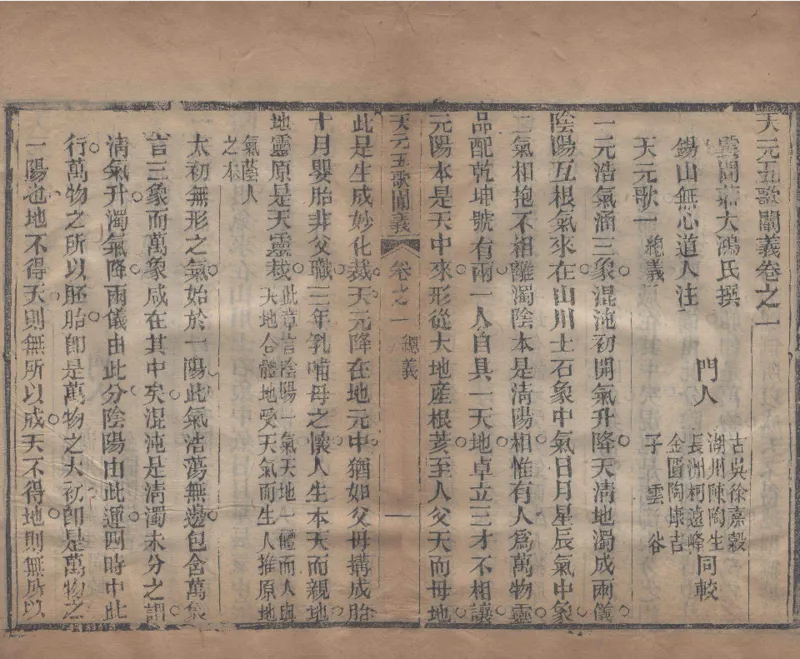 天元五歌闡義卷之一
雲間蔣大鴻氏撰
錫山無心道人注
門人
古吳徐嘉穀
湖州陳陶生
長洲柯遠峰
金匱陶康吉
子雲谷
同較
天元歌一 總義
一元浩氣涵三象混沌初開氣升降天清地濁成兩儀
陰陽互根氣來在山川土石象中氣日月星辰氣中象
二氣相抱不相離濁陰本是清陽相惟有人為萬物靈
品配乾坤號有兩一人自具一天地卓立三才不相讓
元陽本是天中來形從大地產根荄至人父天而母地
天元五歌闡義 卷之一 總義 一
此是生成妙化裁天元降在地元中猶如父母搆成胎
十月嬰胎非父職三年乳哺母之懷人生本天而親地
地靈原是天靈栽
此章言陰陽一氣天地一體而人與
天地合體地受天氣而生人推原地
氣蔭人
之本
太初無形之氣始於一陽此氣浩蕩無邊包含萬象
言三象而萬象咸在其中矣混沌是清濁未分之謂
清氣升濁氣降兩儀由此分陰陽由此運四時由此
行萬物之所以胚胎卽是萬物之太初卽是萬物之
一陽也地不得天則無所以成天不得地則無所以